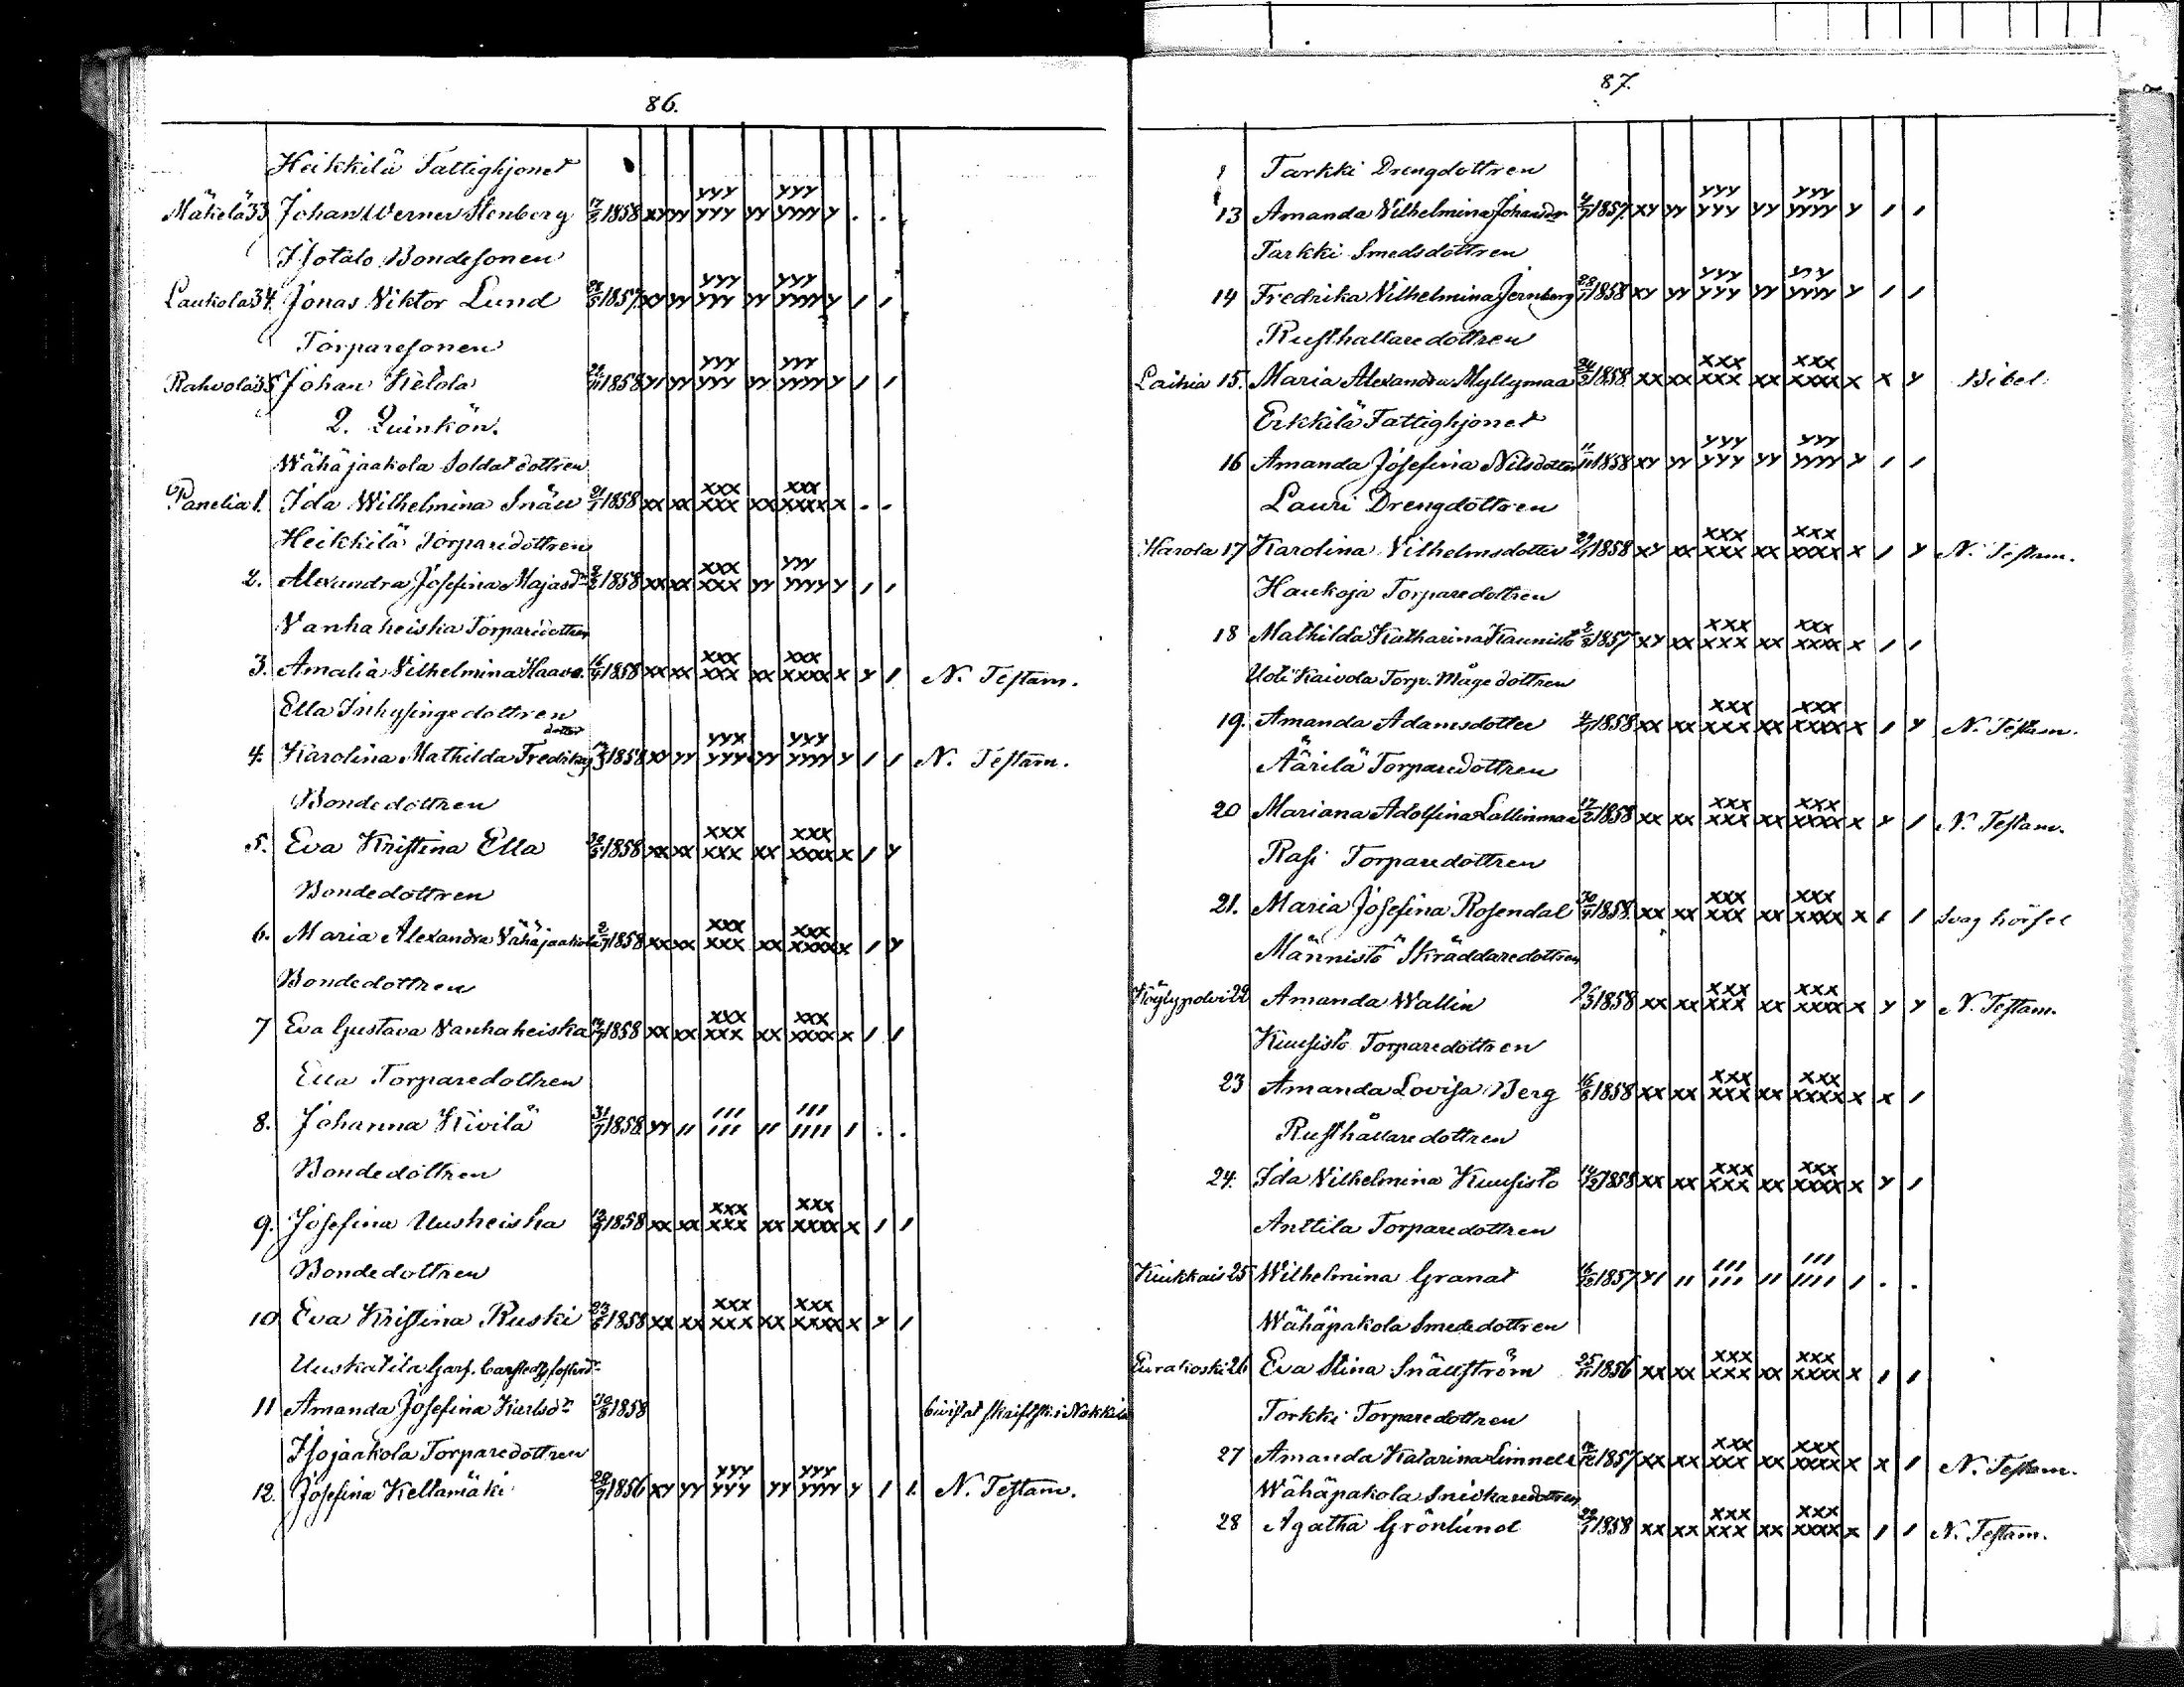 86.
Heikkilä Fattighjonet
Mäkelä 33 Johan Werner Stenberg 1858 xy yy yyy yyy yy yyy yyyy y . .
Isotalo Bondesonen
Laukola 34. Jonas Viktor Lund 1857 xy yy yyy yyy yy yyy yyyy y / /
Torparesonen
Rahvola 35 Johan Ketola 1858 y/ yy yyy yyy yy yyy yyyy y / /
2. Quinkön.
Wähäjaakola Soldatdottren
Panelia 1. Ida Wilhelmina Snäll 1858 xx xx xxx xxx xx xxx xxxx x . .
Heikkilä Torparedottren
2. Alexandra Josefina Majasdr 1858 xx xx xxx xxx yy yyy yyyy y / /
Vanhaheiska Torparedottren
3. Amalia Vilhelmina Haava. 1858 xx xx xxx xxx xx xxx xxxx x y / N. Testam.
Ella Inhysingedottren
4. Karolina Mathilda Fredriks dotter 1858 xy yy yyx yyy yy yyy yyyy y / / N. Testam.
Bondedottren
5. Eva Kristina Ella 1858 xx xx xxx xxx xx xxx xxxx x / y
Bondedottren
6. Maria Alexandra Vähäjaakola 1858 xx xx xxx xxx xx xxx xxxx x / y
Bondedottren
7 Eva Gustava Vanhaheiska 1858 xx xx xxx xxx xx xxx xxxx x / /
Ella Torparedottren
8. Johanna Kivilä 31/7 1858 yy // /// /// // /// //// / . .
Bondedottren
9. Josefina Uusheiska 1858 xx xx xxx xxx xx xxx xxxx x / /
Bondedottren
10 Eva Kristina Ruski 1858 xx xx xxx xxx xx xxx xxxx x y /
Uuskatila Garf.
11 Amanda Josefina Karlsdr 1858 bivistat skriftsk. i Nakkila
Isojaakola Torparedottren
12. Josefina Kellamäki 1856 xy yy yyy yyy yy yyy yyyy y / /. N. Testam.
87.
Tarkki Drengdottren
13 Amanda Vilhelmina Johansdr 1857 xy yy yyy yyy yy yyy yyyy y / /
Tarkki Smedsdottren
14 Fredrika Vilhelmina Jernberg 1858 xy yy yyy yyy yy yyy yyyy y / /
Rusthållaredottren
Laihia 15. Maria Alexandra Myllymaa 1858 xx xx xxx xxx xx xxx xxxx x x y Bibel
Erkkilä Fattighjonet
16 Amanda Josefina Nilsdotter 11/11 1858 xy yy yyy yyy yy yyy yyyy y / /
Lauri Drengdottren
Harola 17 Karolina Vilhelmsdotter 1858 xy xx xxx xxx xx xxx xxxx x / y N. Testam.
Haukoja Torparedottren
18 Mathilda Katharina Kaunisto 1857 xy xx xxx xxx xx xxx xxxx x / /
Uoti Kaivola Torp. Måge dottren
19. Amanda Adamsdotter 1858 xx xx xxx xxx xx xxx xxxx x / y N. Testam.
Äärilä Torparedottren
20 Mariana Adolfina Lallinmaa 1858 xx xx xxx xxx xx xxx xxxx x y / N. Testam.
Rasi Torparedottren
21. Maria Josefina Rosendal 1858 xx xx xxx xxx xx xxx xxxx x / / svag hörsel
Männistö Skräddaredottren
Köylypolvi 22 Amanda Wallin 1858 xx xx xxx xxx xx xxx xxxx x y y N. Testam.
Kuusisto Torparedottren
23 Amanda Lovisa Berg 1858 xx xx xxx xxx xx xxx xxxx x x /
Rusthållaredottren
24. Ida Vilhelmina Kuusisto 1858 xx xx xxx xxx xx xxx xxxx x y /
Anttila Torparedottren
Kiukkais 25 Wilhelmina Granat 1857 y/ // /// /// // /// //// / . .
Wähäpakola Smededottren
Eurakoski 26 Eva Stina Snällström 1856 xx xx xxx xxx xx xxx xxxx x / /
Torkki Torparedottren
27 Amanda Katarina Limnell 1857 xx xx xxx xxx xx xxx xxxx x x / N. Testam.
Wähäpakola Snickaredottren
28 Agatha Grönlund 1858 xx xx xxx xxx xx xxx xxxx x / / N. Testam.